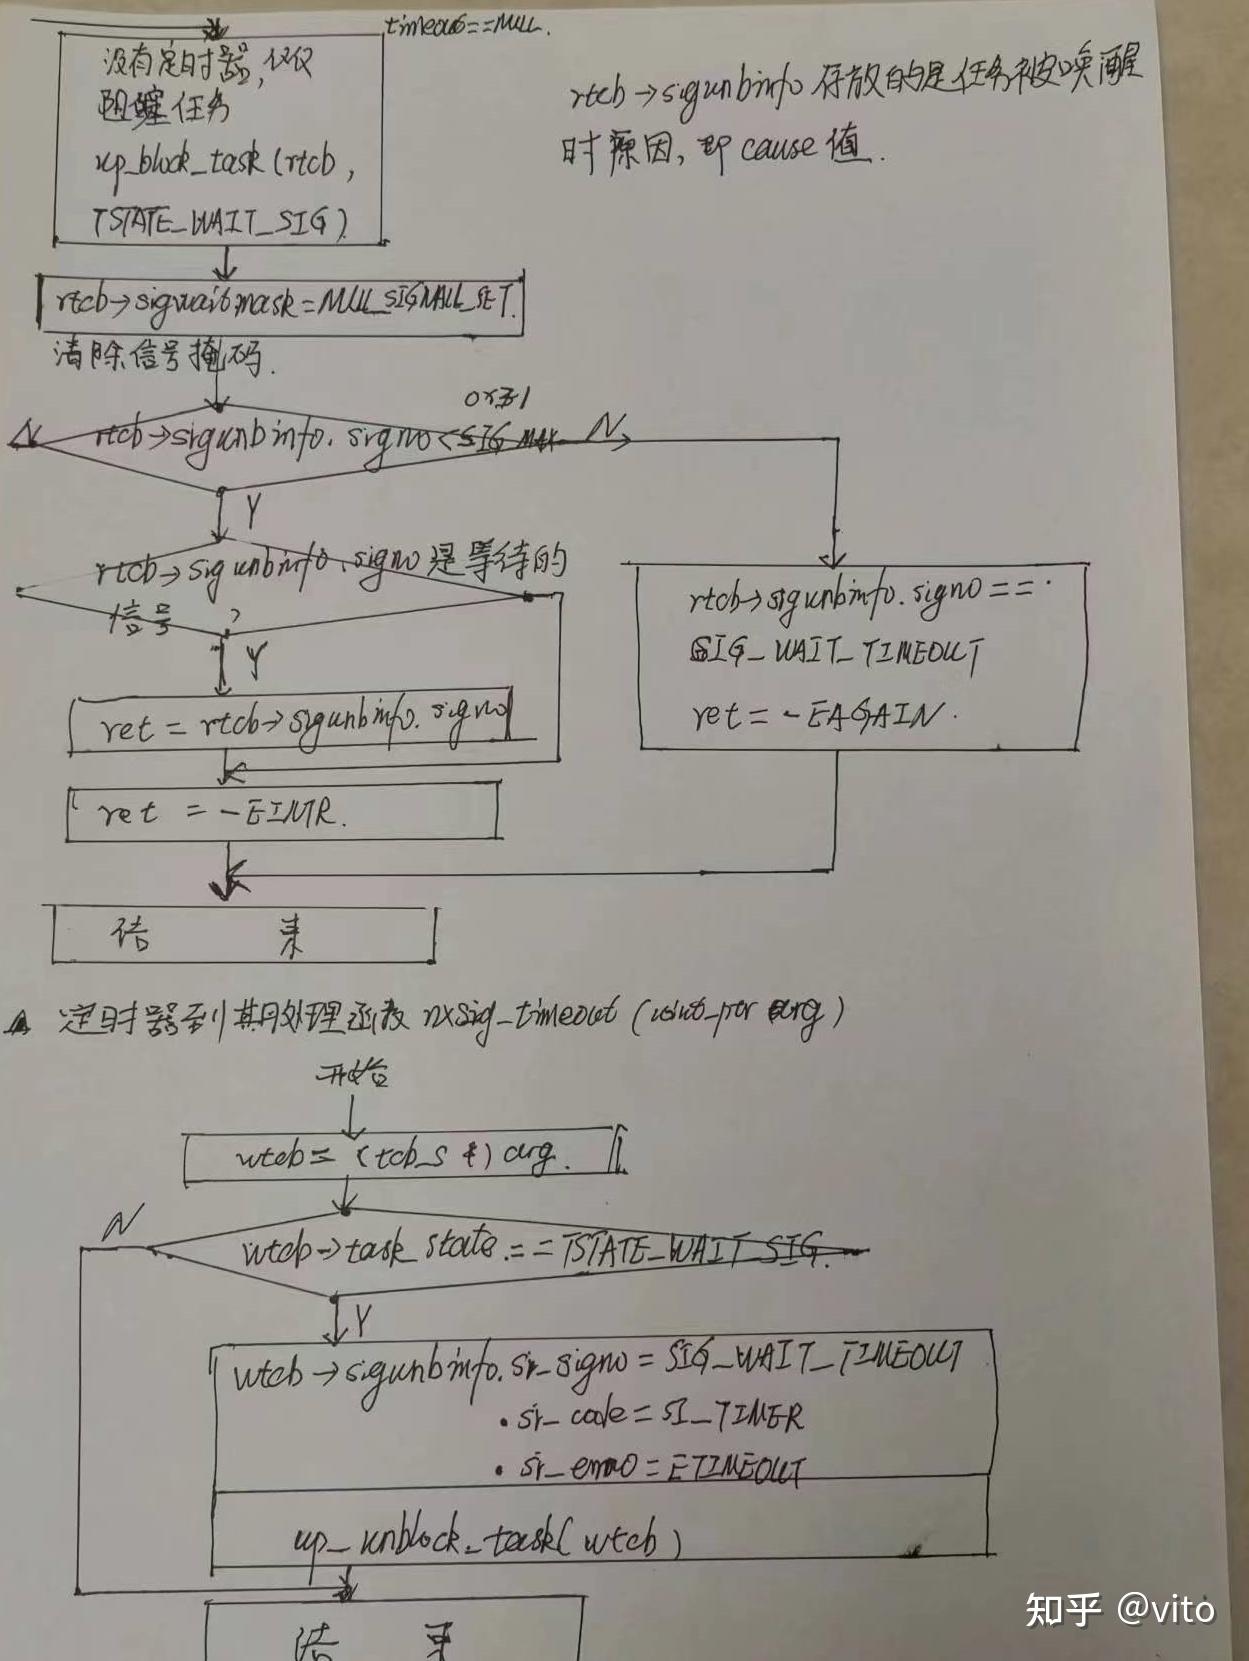 timeout==NULL.
没有定时器,仅仅
阻塞任务
up_block_task(rtcb,
TSTATE_WAIT_SIG)
rtcb→sigunbinfo存放的是任务被唤醒
时原因,即cause值.
rtcb→sigwaitmask=NULL_SIGNAL_SET.
清除信号掩码.
N
rtcb→sigunbinfo.signo<SIG_MAX
N
Y
rtcb→sigunbinfo.signo是等待的
信号?
Y
ret = rtcb→sigunbinfo.signo
ret = -EINTR.
rtcb→sigunbinfo.signo==
SIG_WAIT_TIMEOUT
ret = -EAGAIN.
结 束
定时器到期处理函数 nxsig_timeout (uint_ptr arg)
开始
wtcb= (tcb_s *) arg.
N
wtcb→task_state == TSTATE_WAIT_SIG.
Y
wtcb→sigunbinfo.si_signo = SIG_WAIT_TIMEOUT
.si_code = SI_TIMER
.si_errno = ETIMEOUT
up_unblock_task(wtcb)
结 束
知乎 @vito